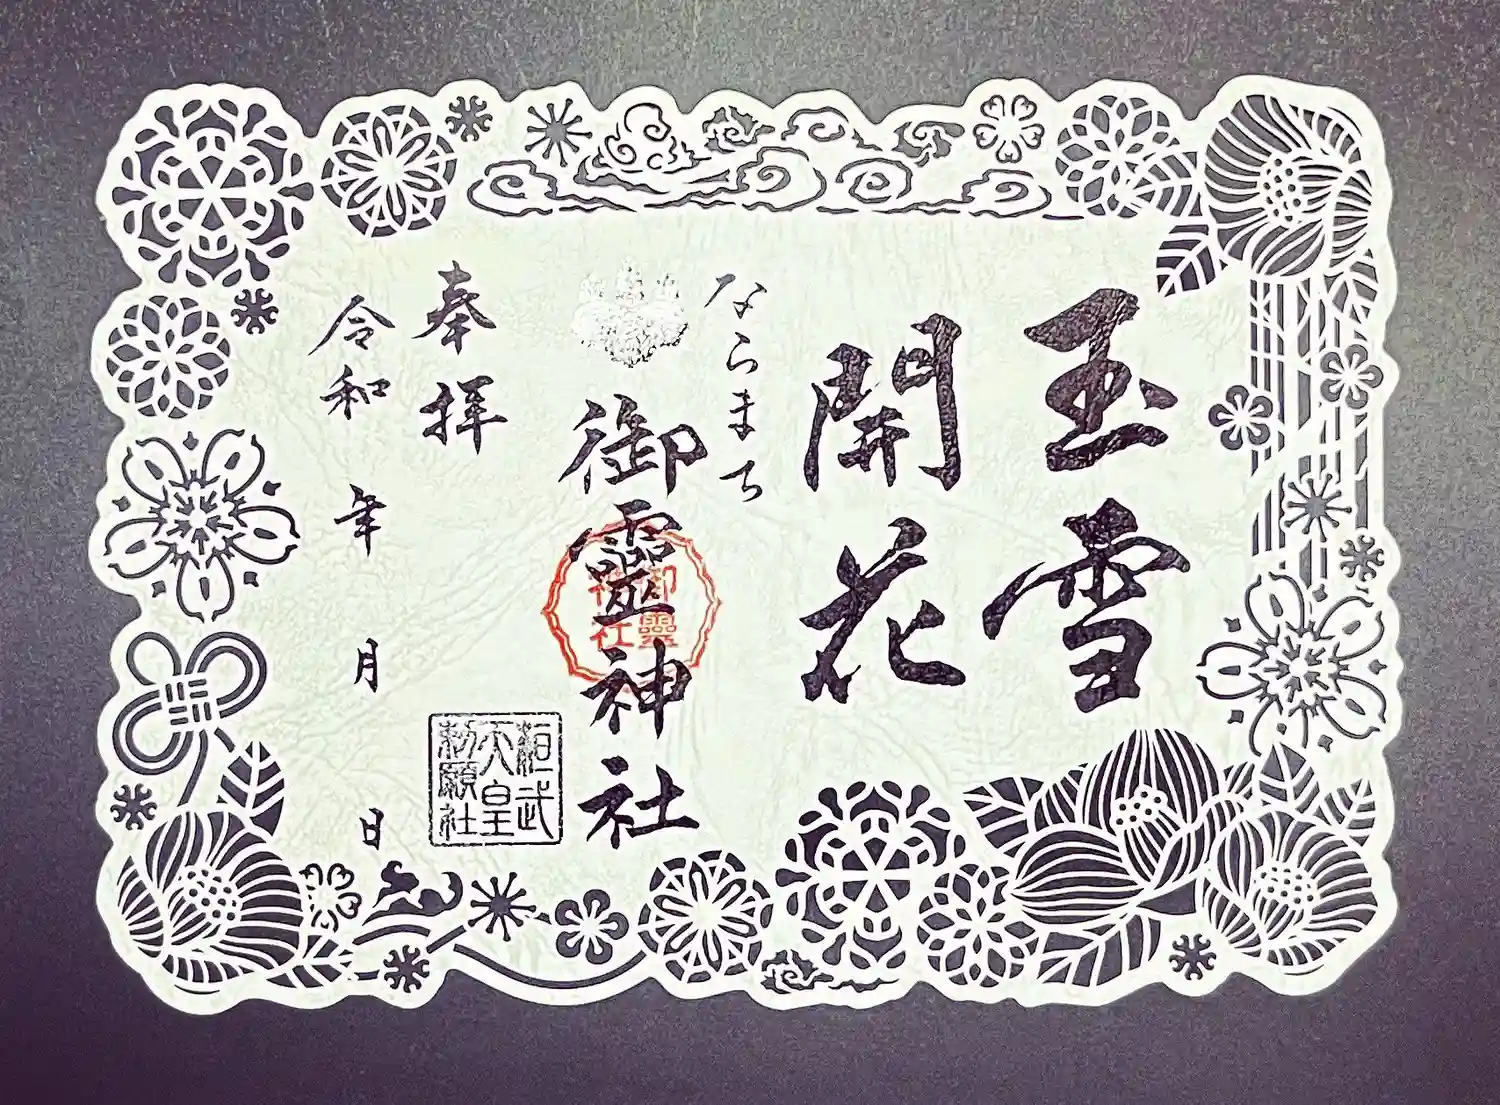 玉雪
開花
ならまち
御霊神社
御靈
神社
奉拝
桓武
天皇
勅願社
令和 年 月 日